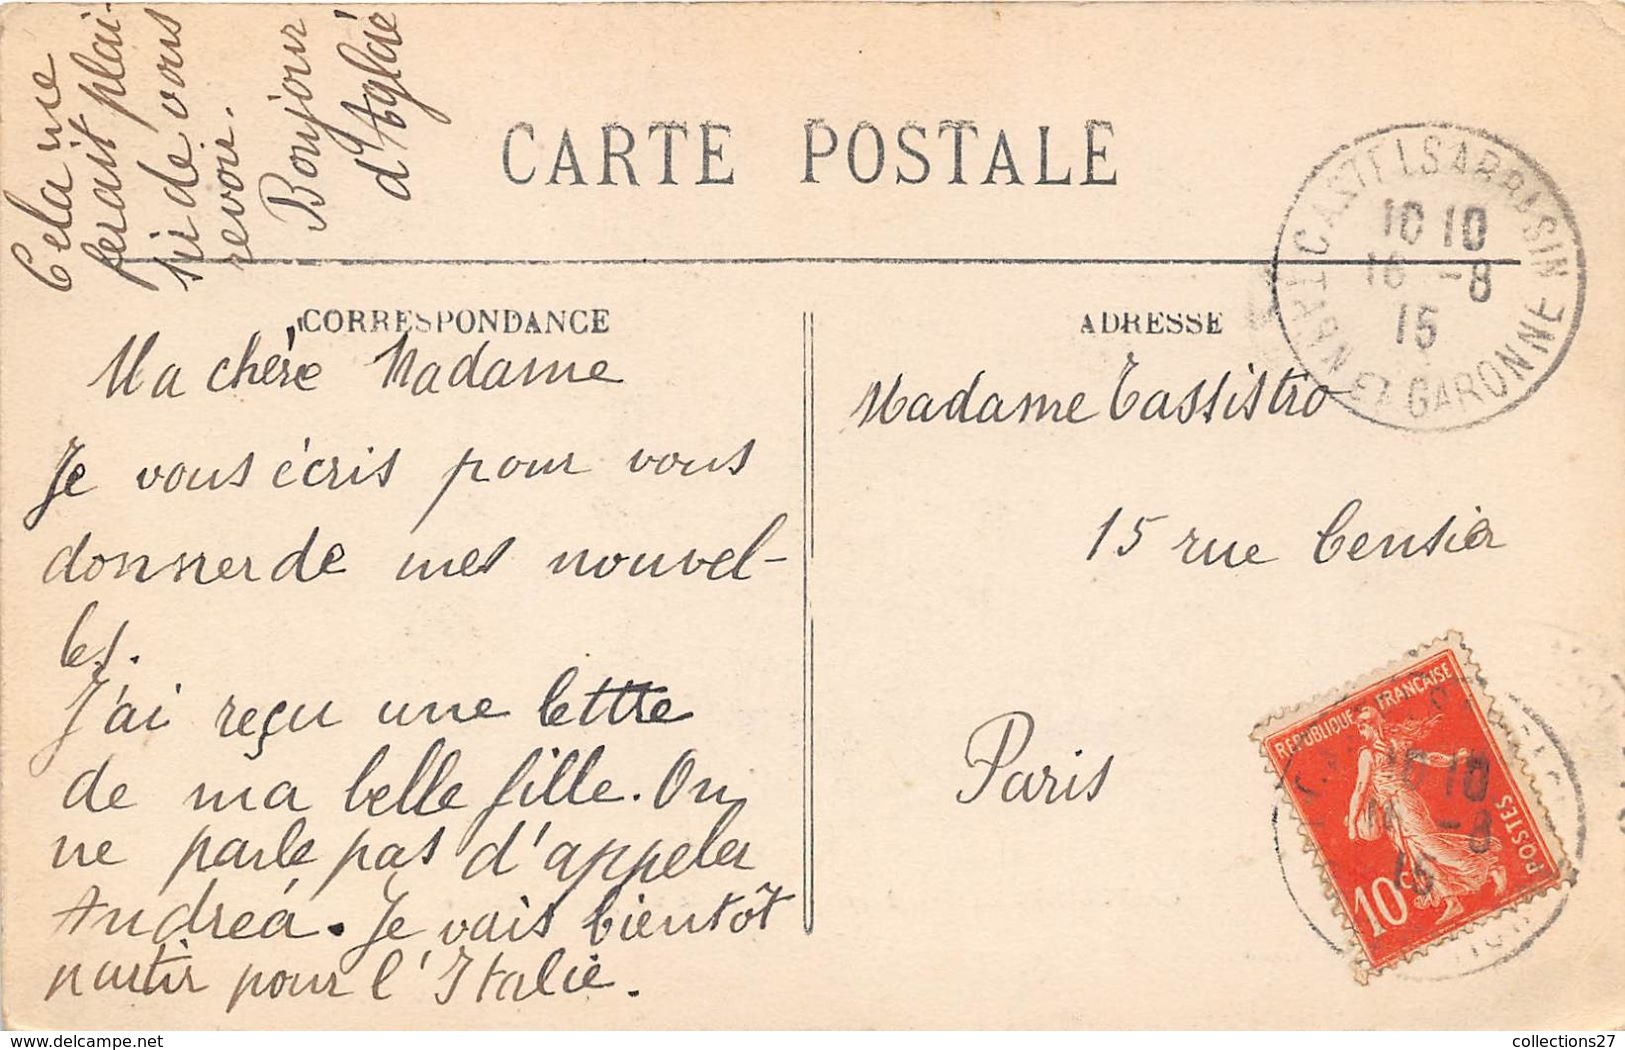 CARTE POSTALE
CORRESPONDANCE
Ma chère Madame
Je vous écris pour vous
donner de mes nouvel-
les.
J'ai reçu une lettre
de ma belle fille. On
ne parle pas d'appeler
Andréa. Je vais bientôt
partir pour l'Italie.
Cela me
ferait plai-
sir de vous
revoir.
Bonjour
d'Aglaé
ADRESSE
Madame Tassistro
15 rue Censier
Paris
CASTELSARRASIN
10 10
16 -8
15
TARN ET GARONNE
REPUBLIQUE FRANÇAISE
10 10
16 -8
15
POSTES
10c
collections27